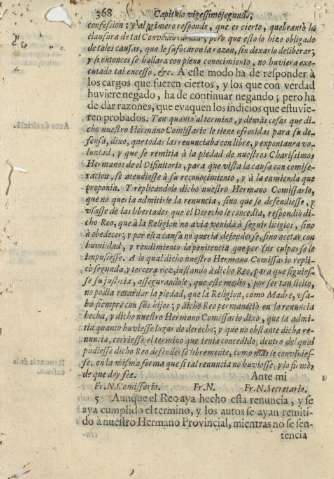 368 Capitulo vigessimosegundo,
confession; y al primero responde, que es cierto, quebrantò la
clausura de tal Convento; pero que esto lo hizo obligado
de tales causas, que le sufocaron la razon, sin dexarle deliberar,
y si entonces se hallara con pleno conocimiento, no huviera exe-
cutado tal excesso, &c. A este modo ha de responder à
los cargos que fueren ciertos, y los que con verdad
huviere negado, ha de continuar negando; pero ha
de dar razones, que evaquen los indicios que estuvie-
ren probados. Y en quanto al termino, y demàs cosas que di-
cho nuestro Hermano Comissario le tiene ofrecidas para su de-
fensa, dixo, que todas las renunciaba con libre, y espontanea vo-
luntad, y que se remitia à la piedad de nuestros Charissimos
Hermanos de el Difinitorio, para que vista la causa con comise-
racion, se atendiesse à su reconocimiento, y à la enmienda que
proponia. Y replicandole dicho nuestro Hermano Comissario,
que no queria admitirle la renuncia, sino que se defendiesse, y
usasse de las libertades que el Derecho le concedia, respondiò di-
cho Reo, que à la Religion no avia venido à seguir litigios, sino
à obedecer; y por essa causa no queria defensas, sino acetar con
humildad, y rendimiento la penitencia que por sus culpas se le
impusiesse. A lo qual dicho nuestro Hermano Comissario repli-
cò segunda, y tercera vez, instando à dicho Reo, para que siguiesse
su justicia, assegurandole, que este medio, por ser tan licito,
no podia retardar la piedad, que la Religion, como Madre, usa-
ba siempre con sus hijos; y dicho Reo permaneciò en la renuncia
hecha, y dicho nuestro Hermano Comissario dixo, que la admi-
tia quanto huviesse lugar de derecho; y que no obstante dicha re-
nuncia, corriesse el termino que tenia concedido, dentro del qual
pudiesse dicho Reo defenderse libremente, como mas le convinies-
se, en la misma forma que si tal renuncia no huviesse, y lo firmò,
de que doy fee. Ante mi
Fr. N. Comissario. Fr. N. Fr. N. Secretario.
5 Aunque el Reo aya hecho esta renuncia, y se
aya cumplido el termino, y los autos se ayan remiti-
do à nuestro Hermano Provincial, mientras no se sen-
tencia